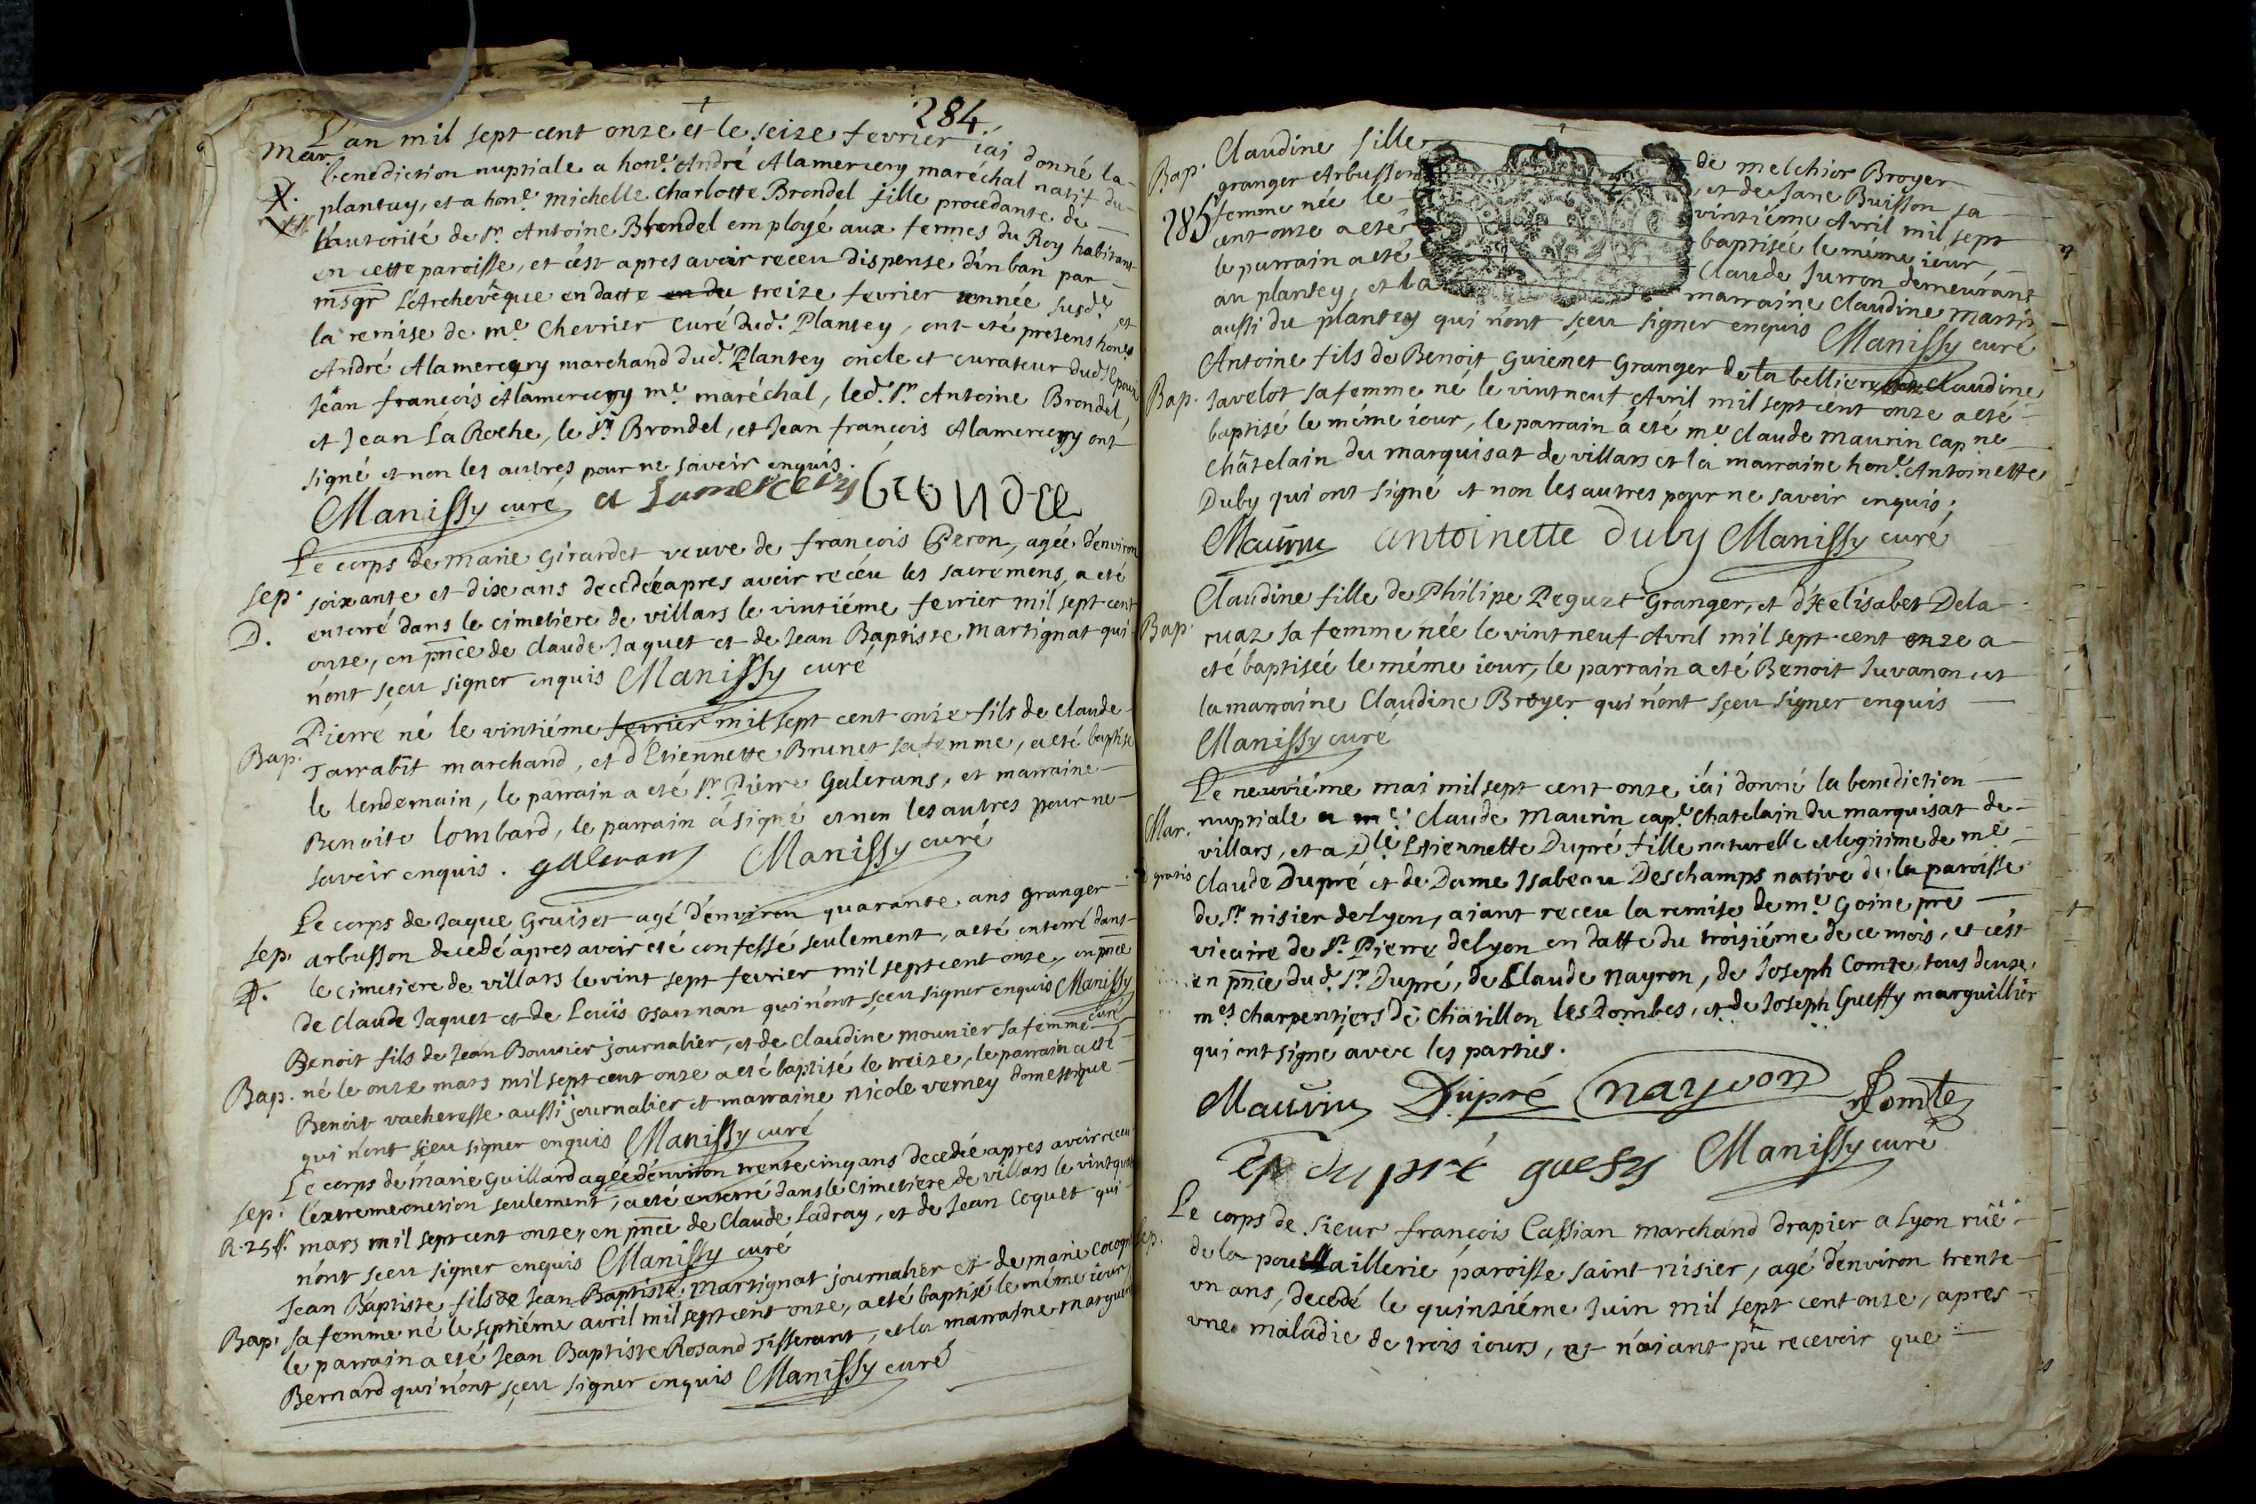 284
L'an mil sept cent onze et le seize fevrier i'ai donné la
Mar. benediction nuptiale a hon.e André Alamercery maréchal natif du
plantay, et a hon.e michelle Charlotte Brondel fille procedante de
l'autorité de Sr. Antoine Brondel employé aux fermes du Roy habitant
en cette paroisse, et c'est apres avoir receu dispense d'un ban par
msgr L'Archevêque en datte en du treize fevrier année susd.e et
la remise de m.e Chevrier Curé dud. Plantey, ont eté presens hon.es
André Alamercery marchand dud. Plantey oncle et curateur dud. Epoux
Jean françois Alamercery m.e maréchal, led. Sr. Antoine Brondel,
et Jean La Roche, le Sr Brondel, et Jean françois Alamercery ont
signé et non les autres pour ne savoir enquis.
Manissy curé a Lamercery Brondel
Le corps de Marie Girardet veuve de françois Peron, agée d'environ
Sep. soixante et dix ans decedée apres avoir recéu les sacremens, a eté
D. enterré dans le cimetiere de villars le vintiéme fevrier mil sept cent
onze, en pnce de Claude Jaquet et de Jean Baptiste Martignat qui
n'ont sçeu signer enquis Manissy curé
Pierre né le vintiéme fevrier mil sept cent onze fils de Claude
Bap. Tarrabit marchand, et d'Etiennette Brunet sa femme, a eté baptisé
le lendemain, le parrain a eté Sr. Pierre Galerans, et marraine
Benoite Lombard, le parrain a signé et non les autres pour ne
savoir enquis. galerans Manissy curé
Le corps de Jaque Gruiset agé d'environ quarante ans granger
Sep. arbusson decedé apres avoir eté confessé seulement, a eté enterré dans
le cimetiere de villars le vint sept fevrier mil sept cent onze, en pnce
de Claude Jaquet et de Louis Osannan qui n'ont sçeu signer enquis Manissy
curé
Benoit fils de Jean Bouvier journalier, et de Claudine mounier sa femme
Bap. né le onze mars mil sept cent onze a eté baptisé le treize, le parrain a eté
Benoit vacheresse aussi journalier et marraine nicole verney domestique
qui n'ont sçeu signer enquis Manissy curé
Le corps de marie Guillard agée d'environ trente cinq ans decedée apres avoir receu
Sep. l'extreme onction seulement, a eté enterré dans le cimetiere de villars le vint quatre
R. 25 s. mars mil sept cent onze, en pnce de Claude Ladray, et de Jean Coquet qui
n'ont sçeu signer enquis Manissy curé
Jean Baptiste fils de Jean Baptiste Martignat journalier et de marie
Bap. sa femme né le septiéme avril mil sept cent onze, a eté baptisé le même iour
le parrain a eté Jean Baptiste Rosand Tisserant, et la marraine
Bernard qui n'ont sçeu signer enquis Manissy curé
Bap. Claudine fille de melchior Broyer
granger Arbusson et de Jane Buisson sa
285 femme née le vintiéme Avril mil sept
cent onze a eté baptisée le même iour,
le parrain a eté Claude Jurron demeurant
au plantey, et la marraine Claudine Martin
aussi du plantey qui n'ont sçeu signer enquis Manissy curé
Antoine fils de Benoit Guienet Granger de la bellier Claudine
Bap. Javelot sa femme né le vint neuf Avril mil sept cent onze a eté
baptisé le même iour, le parrain a eté m.e Claude Maurin Cap.ne
Châtelain du marquisat de villars et la marraine hon.e Antoinette
Duby qui ont signé et non les autres pour ne savoir enquis.
Maurin antoinette duby Manissy curé
Claudine fille de Philipe Peguet Granger, et d'Helisabet Dela
Bap. ruaz sa femme née le vint neuf Avril mil sept cent onze a
eté baptisée le même iour, le parrain a eté Benoit Juvanon, et
la marraine Claudine Broyer qui n'ont sçeu signer enquis
Manissy curé
Le neuviéme mai mil sept cent onze i'ai donné la benediction
Mar. nuptiale a m.e Claude Maurin cap.e Chatelain du marquisat de
villars, et a Dle. Etiennette Dupré fille naturelle et legitime de m.e
gratis Claude Dupré et de Dame Isabeau Deschamps native de la paroisse
de St. nisier de Lyon, aiant receu la remise de m.e Goine pre
vicaire de St. Pierre de Lyon en datte du troisiéme de ce mois, et c'est
en pnce dud. Sr. Dupré, de Claude Nayron, de Joseph Comte tous deux
m.es charpentiers de Chatillon les Dombes, et de Joseph Gueffy marguillier
qui ont signé avec les parties.
Maurin Dupré nayron Comte
dupré guefy Manissy curé
Le corps de sieur françois Cassian marchand drapier a Lyon ruë
Sep. de la poullaillerie paroisse saint nisier, agé d'environ trente
un ans, decedé le quinziéme Juin mil sept cent onze, apres
une maladie de trois iours, et n'aiant pû recevoir que